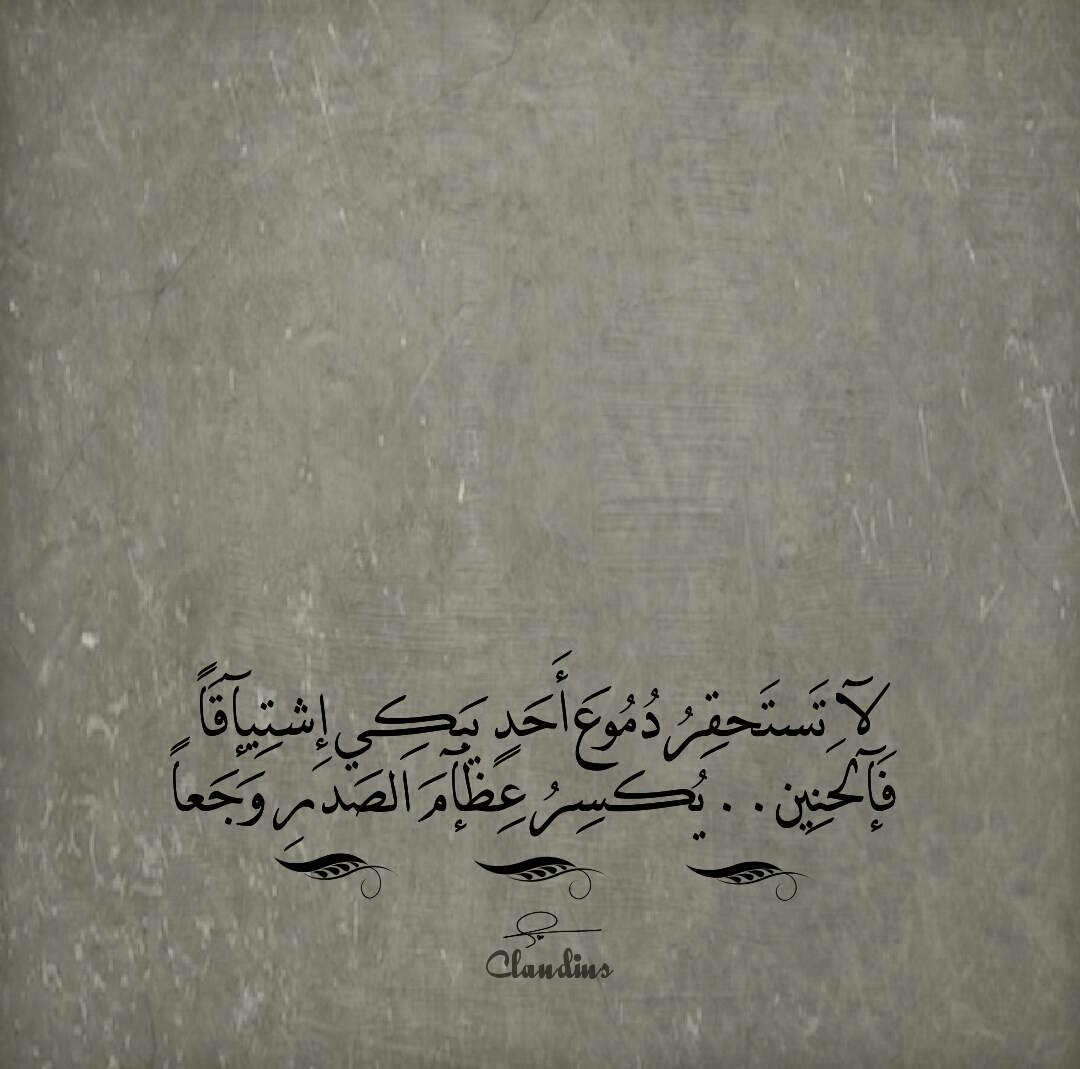 لَآ تَستَحقِرُ دُمُوعَ أَحَدٍ يَبكِي إِشتِيآقَاً
فَإَلحَنِين . . يُكسِرُ عِظَآمَ اَلصَدرِ وَجَعاً
Claudius